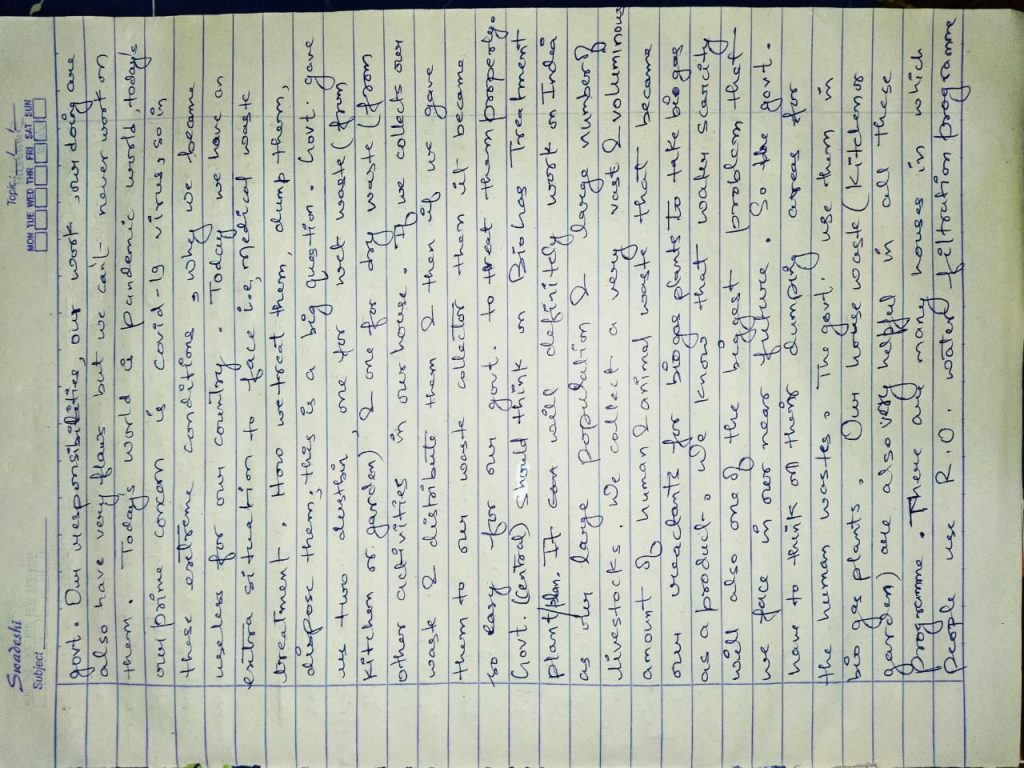 Swadeshi
Subject
Topic
MON TUE WED THR FRI SAT SUN
govt. Our responsibilities, our work, our doing are
also have very flaws but we can't never work on
them. Todays world is pandemic world, today's
our prime concan is covid-19 virus, so in
these extreme conditions, why we became
useless for our country. Today we have an
extra situation to face i.e, Medical waste
treatment. How we treat them, dump them,
dispose them, this is a big question. Govt. gave
us two dustbin, one for wet waste (from
kitchen or garden), & one for dry waste (from
other activities in our house. If we collects our
wask & distribute them & then if we gave
them to our waste collector them it become
so easy for our govt. to treat them properly.
Govt. (central) should think on Biohas Treatment
plant/plan. It can will definitly work on India
as our large population & large number of
livestocks. We collect a very vast & voluminous
amount of human & animal waste that became
our reactants for biogas plants to take biogas
as a product. We know that water scarcity
will also one of the biggest problem that
we face in over near future. So the govt.
have to think on their dumping areas for
the human wastes. The govt. use them in
bio gas plants. Our house waste (Kitchen or
garden) are also very helpful in all these
programme. There are many houses in which
people use R.O. water filtration programme